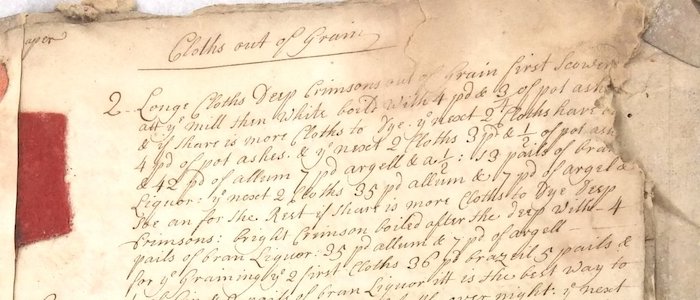 aper
Cloths out of Grain
2 Longe Cloths Deep Crimsons out of Grain first Scower
att ye Mill then White boild with 4 pd & 3/4 of pot ashes
& if thare is more Cloths to Dye: ye next 2 Cloths have
4 pd of pot ashes: & ye next 2 Cloths 3 pd & 1/2 of pot ash
& 42 pd of allum 7 pd argell & a 1/2: 13 pails of bran
Liquor: ye next 2 Cloths 35 pd allum & 7 pd of argel &
Soe an for the Rest if thare is more Cloths to Dye Deep
Crimsons: bright Crimson boiled after the deep with 4
pails of bran Liquor: 35 pd allum & 7 pd of argell
for ye Graining ye 2 first Cloths 36 pd brazil 5 pails &
pails of bran Liquor itt is the best way to
over night: ye next